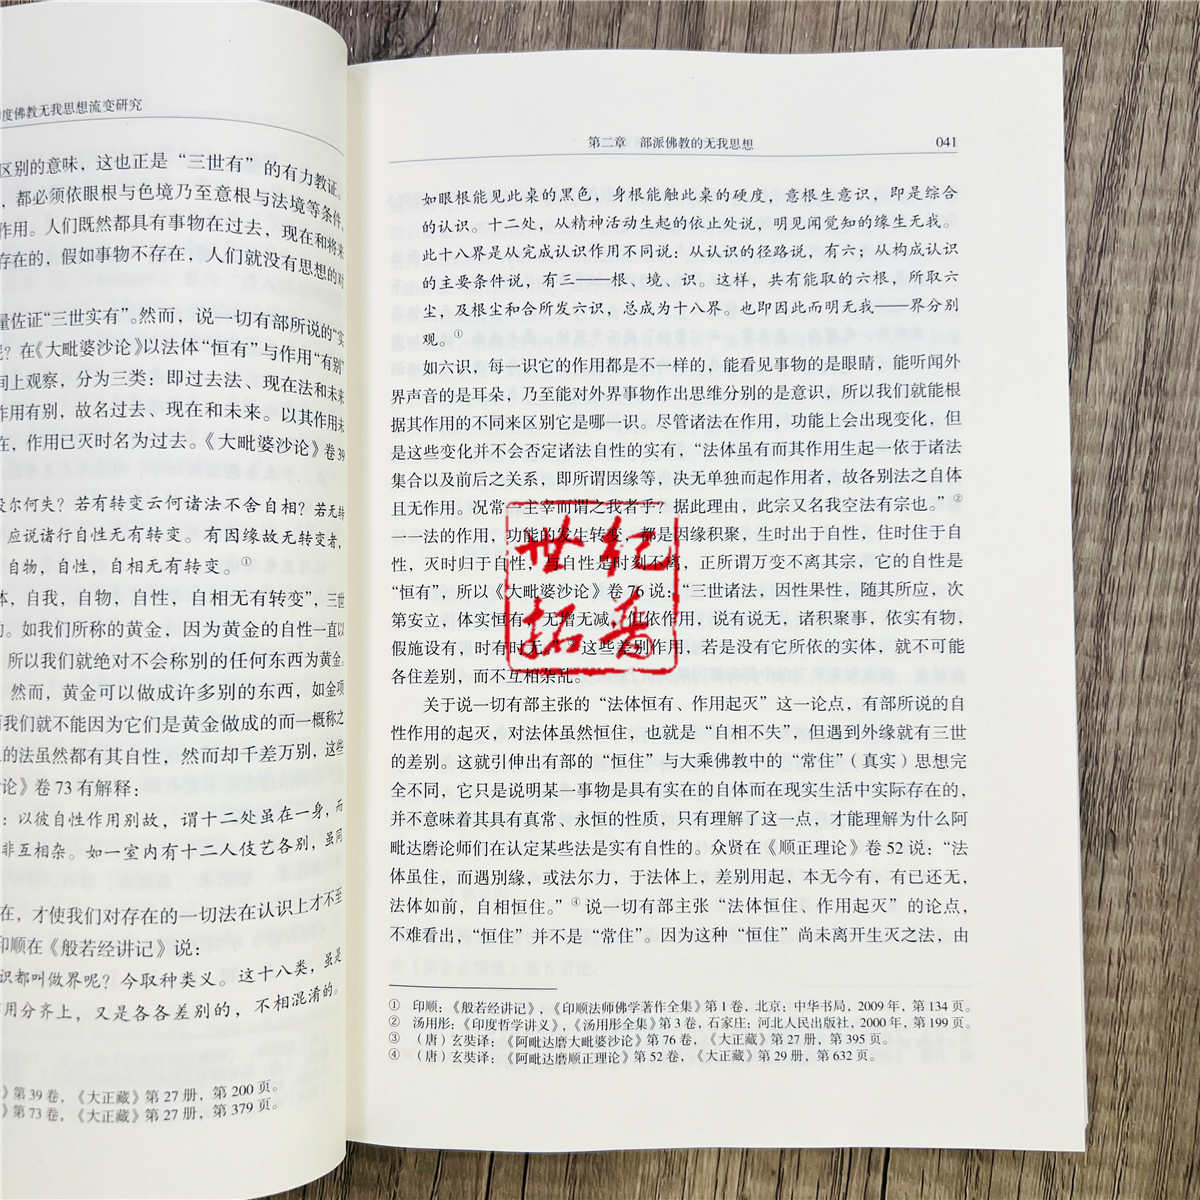 度佛教无我思想流变研究
区别的意味，这也正是“三世有”的有力教证。
，都必须依眼根与色境乃至意根与法境等条件，
作用。人们既然都具有事物在过去，现在和将来
存在的，假如事物不存在，人们就没有思想的对
量佐证“三世实有”。然而，说一切有部所说的“实
呢？在《大毗婆沙论》以法体“恒有”与作用“有别”
间上观察，分为三类：即过去法、现在法和未来
作用有别，故名过去、现在和未来。以其作用未
在，作用已灭时名为过去。《大毗婆沙论》卷39
设尔何失？若有转变云何诸法不舍自相？若无转
应说诸行自性无有转变。有因缘故无转变者，
自物，自性，自相无有转变。①
体，自我，自物，自性，自相无有转变”，三世
的。如我们所称的黄金，因为黄金的自性一直以
所以我们就绝对不会称别的任何东西为黄金。
然而，黄金可以做成许多别的东西，如金项
而我们就不能因为它们是黄金做成的而一概称之
的法虽然都有其自性，然而却千差万别，这些
论》卷73有解释：
：以彼自性作用别故，谓十二处虽在一身，而
非互相杂。如一室内有十二人伎艺各别，虽同
在，才使我们对存在的一切法在认识上才不至
印顺在《般若经讲记》说：
识都叫做界呢？今取种类义。这十八类，虽是
用分齐上，又是各各差别的，不相混淆的。
》第39卷，《大正藏》第27册，第200页。
》第73卷，《大正藏》第27册，第379页。
第二章 部派佛教的无我思想 041
如眼根能见此桌的黑色，身根能触此桌的硬度，意根生意识，即是综合
的认识。十二处，从精神活动生起的依止处说，明见闻觉知的缘生无我。
此十八界是从完成认识作用不同说：从认识的径路说，有六；从构成认识
的主要条件说，有三——根、境、识。这样，共有能取的六根，所取六
尘，及根尘和合所发六识，总成为十八界。也即因此而明无我——界分别
观。①
如六识，每一识它的作用都是不一样的，能看见事物的是眼睛，能听闻外
界声音的是耳朵，乃至能对外界事物作出思维分别的是意识，所以我们就能根
据其作用的不同来区别它是哪一识。尽管诸法在作用，功能上会出现变化，但
是这些变化并不会否定诸法自性的实有，“法体虽有而其作用生起一依于诸法
集合以及前后之关系，即所谓因缘等，决无单独而起作用者，故各别法之自体
且无作用。况常一主宰而谓之我者乎？据此理由，此宗又名我空法有宗也。”②
一一法的作用，功能的发生转变，都是因缘积聚，生时出于自性，住时住于自
性，灭时归于自性，与自性是时刻不离，正所谓万变不离其宗，它的自性是
“恒有”，所以《大毗婆沙论》卷76说：“三世诸法，因性果性，随其所应，次
第安立，体实恒有，无增无减，但依作用，说有说无，诸积聚事，依实有物，
假施设有，时有时无。”这些差别作用，若是没有它所依的实体，就不可能
各住差别，而不互相杂乱。
关于说一切有部主张的“法体恒有、作用起灭”这一论点，有部所说的自
性作用的起灭，对法体虽然恒住，也就是“自相不失”，但遇到外缘就有三世
的差别。这就引伸出有部的“恒住”与大乘佛教中的“常住”（真实）思想完
全不同，它只是说明某一事物是具有实在的自体而在现实生活中实际存在的，
并不意味着其具有真常、永恒的性质，只有理解了这一点，才能理解为什么阿
毗达磨论师们在认定某些法是实有自性的。众贤在《顺正理论》卷52说：“法
体虽住，而遇别缘，或法尔力，于法体上，差别用起，本无今有，有已还无，
法体如前，自相恒住。”④说一切有部主张“法体恒住、作用起灭”的论点，
不难看出，“恒住”并不是“常住”。因为这种“恒住”尚未离开生灭之法，由
① 印顺：《般若经讲记》，《印顺法师佛学著作全集》第1卷，北京：中华书局，2009年，第134页。
② 汤用彤：《印度哲学讲义》，《汤用彤全集》第3卷，石家庄：河北人民出版社，2000年，第199页。
③ （唐）玄奘译：《阿毗达磨大毗婆沙论》第76卷，《大正藏》第27册，第395页。
④ （唐）玄奘译：《阿毗达磨顺正理论》第52卷，《大正藏》第29册，第632页。
世纪
拓晋